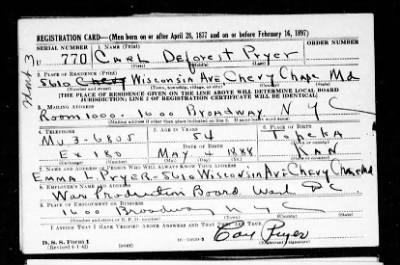 REGISTRATION CARD—(Men born on or after April 28, 1877 and on or before February 16, 1897)
SERIAL NUMBER 1. NAME (Print) ORDER NUMBER
U 770 Carl Deforest Pryer
(First) (Middle) (Last)
2. PLACE OF RESIDENCE (Print)
5610 Wisconsin Ave, Chevy Chase Md
(Number and street) (Town, township, village, or city) (County) (State)
[THE PLACE OF RESIDENCE GIVEN ON THE LINE ABOVE WILL DETERMINE LOCAL BOARD
JURISDICTION; LINE 2 OF REGISTRATION CERTIFICATE WILL BE IDENTICAL]
3. MAILING ADDRESS
Room 1000. 1600 Broadway. N Y C
[Mailing address if other than place indicated on line 2. If same insert word same]
4. TELEPHONE 5. AGE IN YEARS 6. PLACE OF BIRTH
MU 3-6805 54 Topeka
DATE OF BIRTH
Ex 185 May 4 1888 Kan
(Exchange) (Number) (Mo.) (Day) (Yr.) (State or country)
7. NAME AND ADDRESS OF PERSON WHO WILL ALWAYS KNOW YOUR ADDRESS
Emma L. Pryer - 5610 Wisconsin Ave, Chevy Chase Md
8. EMPLOYER'S NAME AND ADDRESS
War Production Board Wash D.C.
9. PLACE OF EMPLOYMENT OR BUSINESS
1600 Broadway N Y C
(Number and street or R. F. D. number) (Town) (County) (State)
I AFFIRM THAT I HAVE VERIFIED ABOVE ANSWERS AND THAT THEY ARE TRUE.
D. S. S. Form 1
(Revised 4-1-42) (over)
Pryer